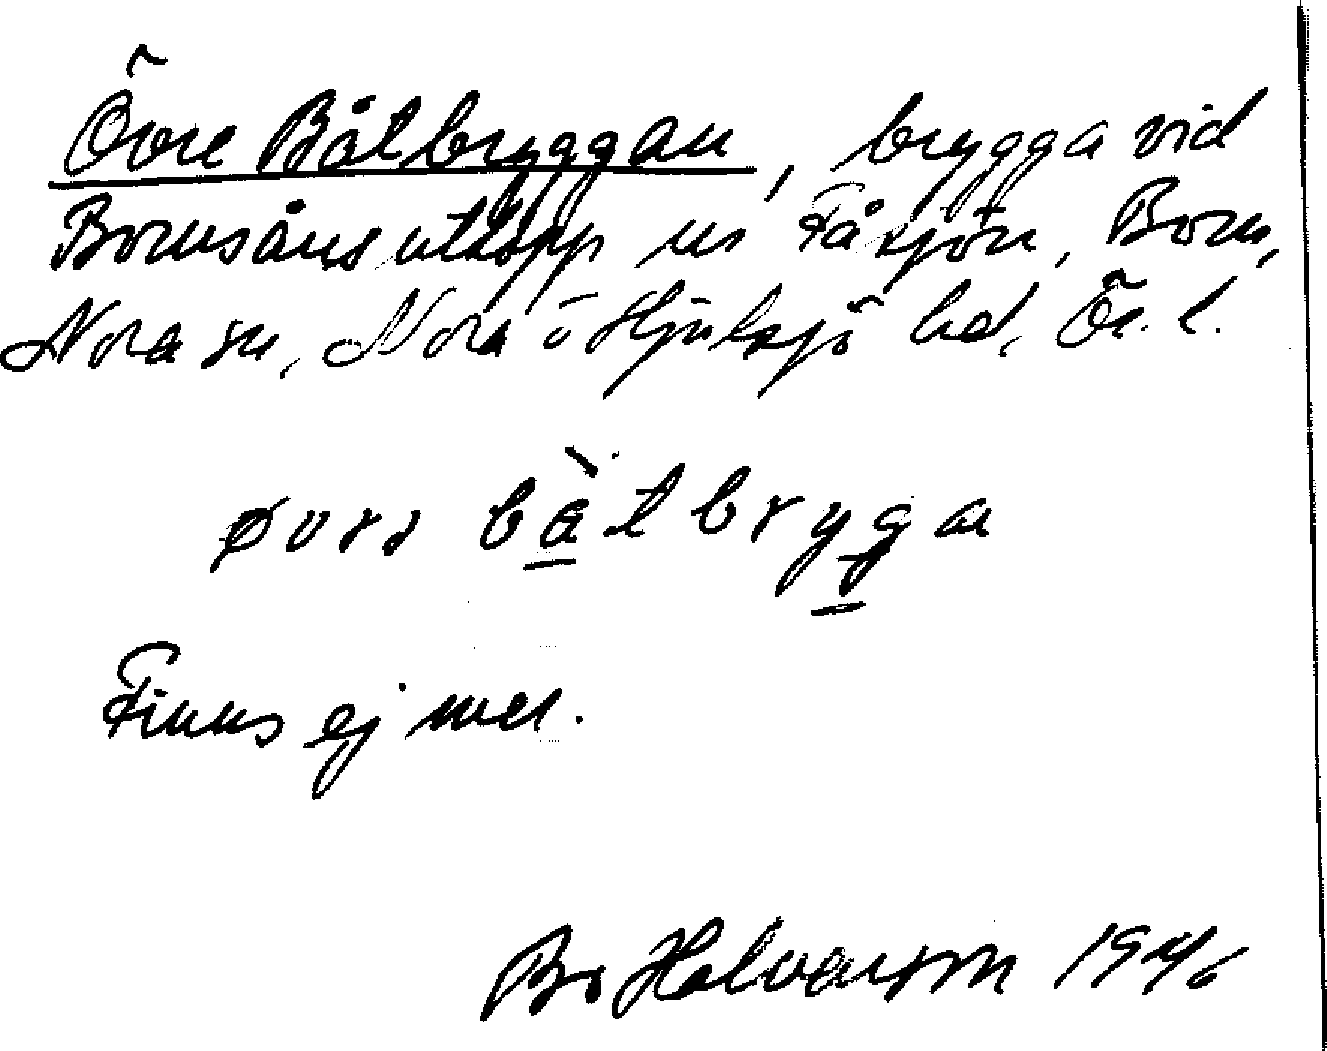 Övre Båtbryggan, brygga vid
Bornsåns utlopp ur Fåsjön, Born,
Nora sn, Nora o Hjulsjö hd, Ör. l.
øvrə bàtbryga
Finns ej mer.
Bo Halvarson 1946